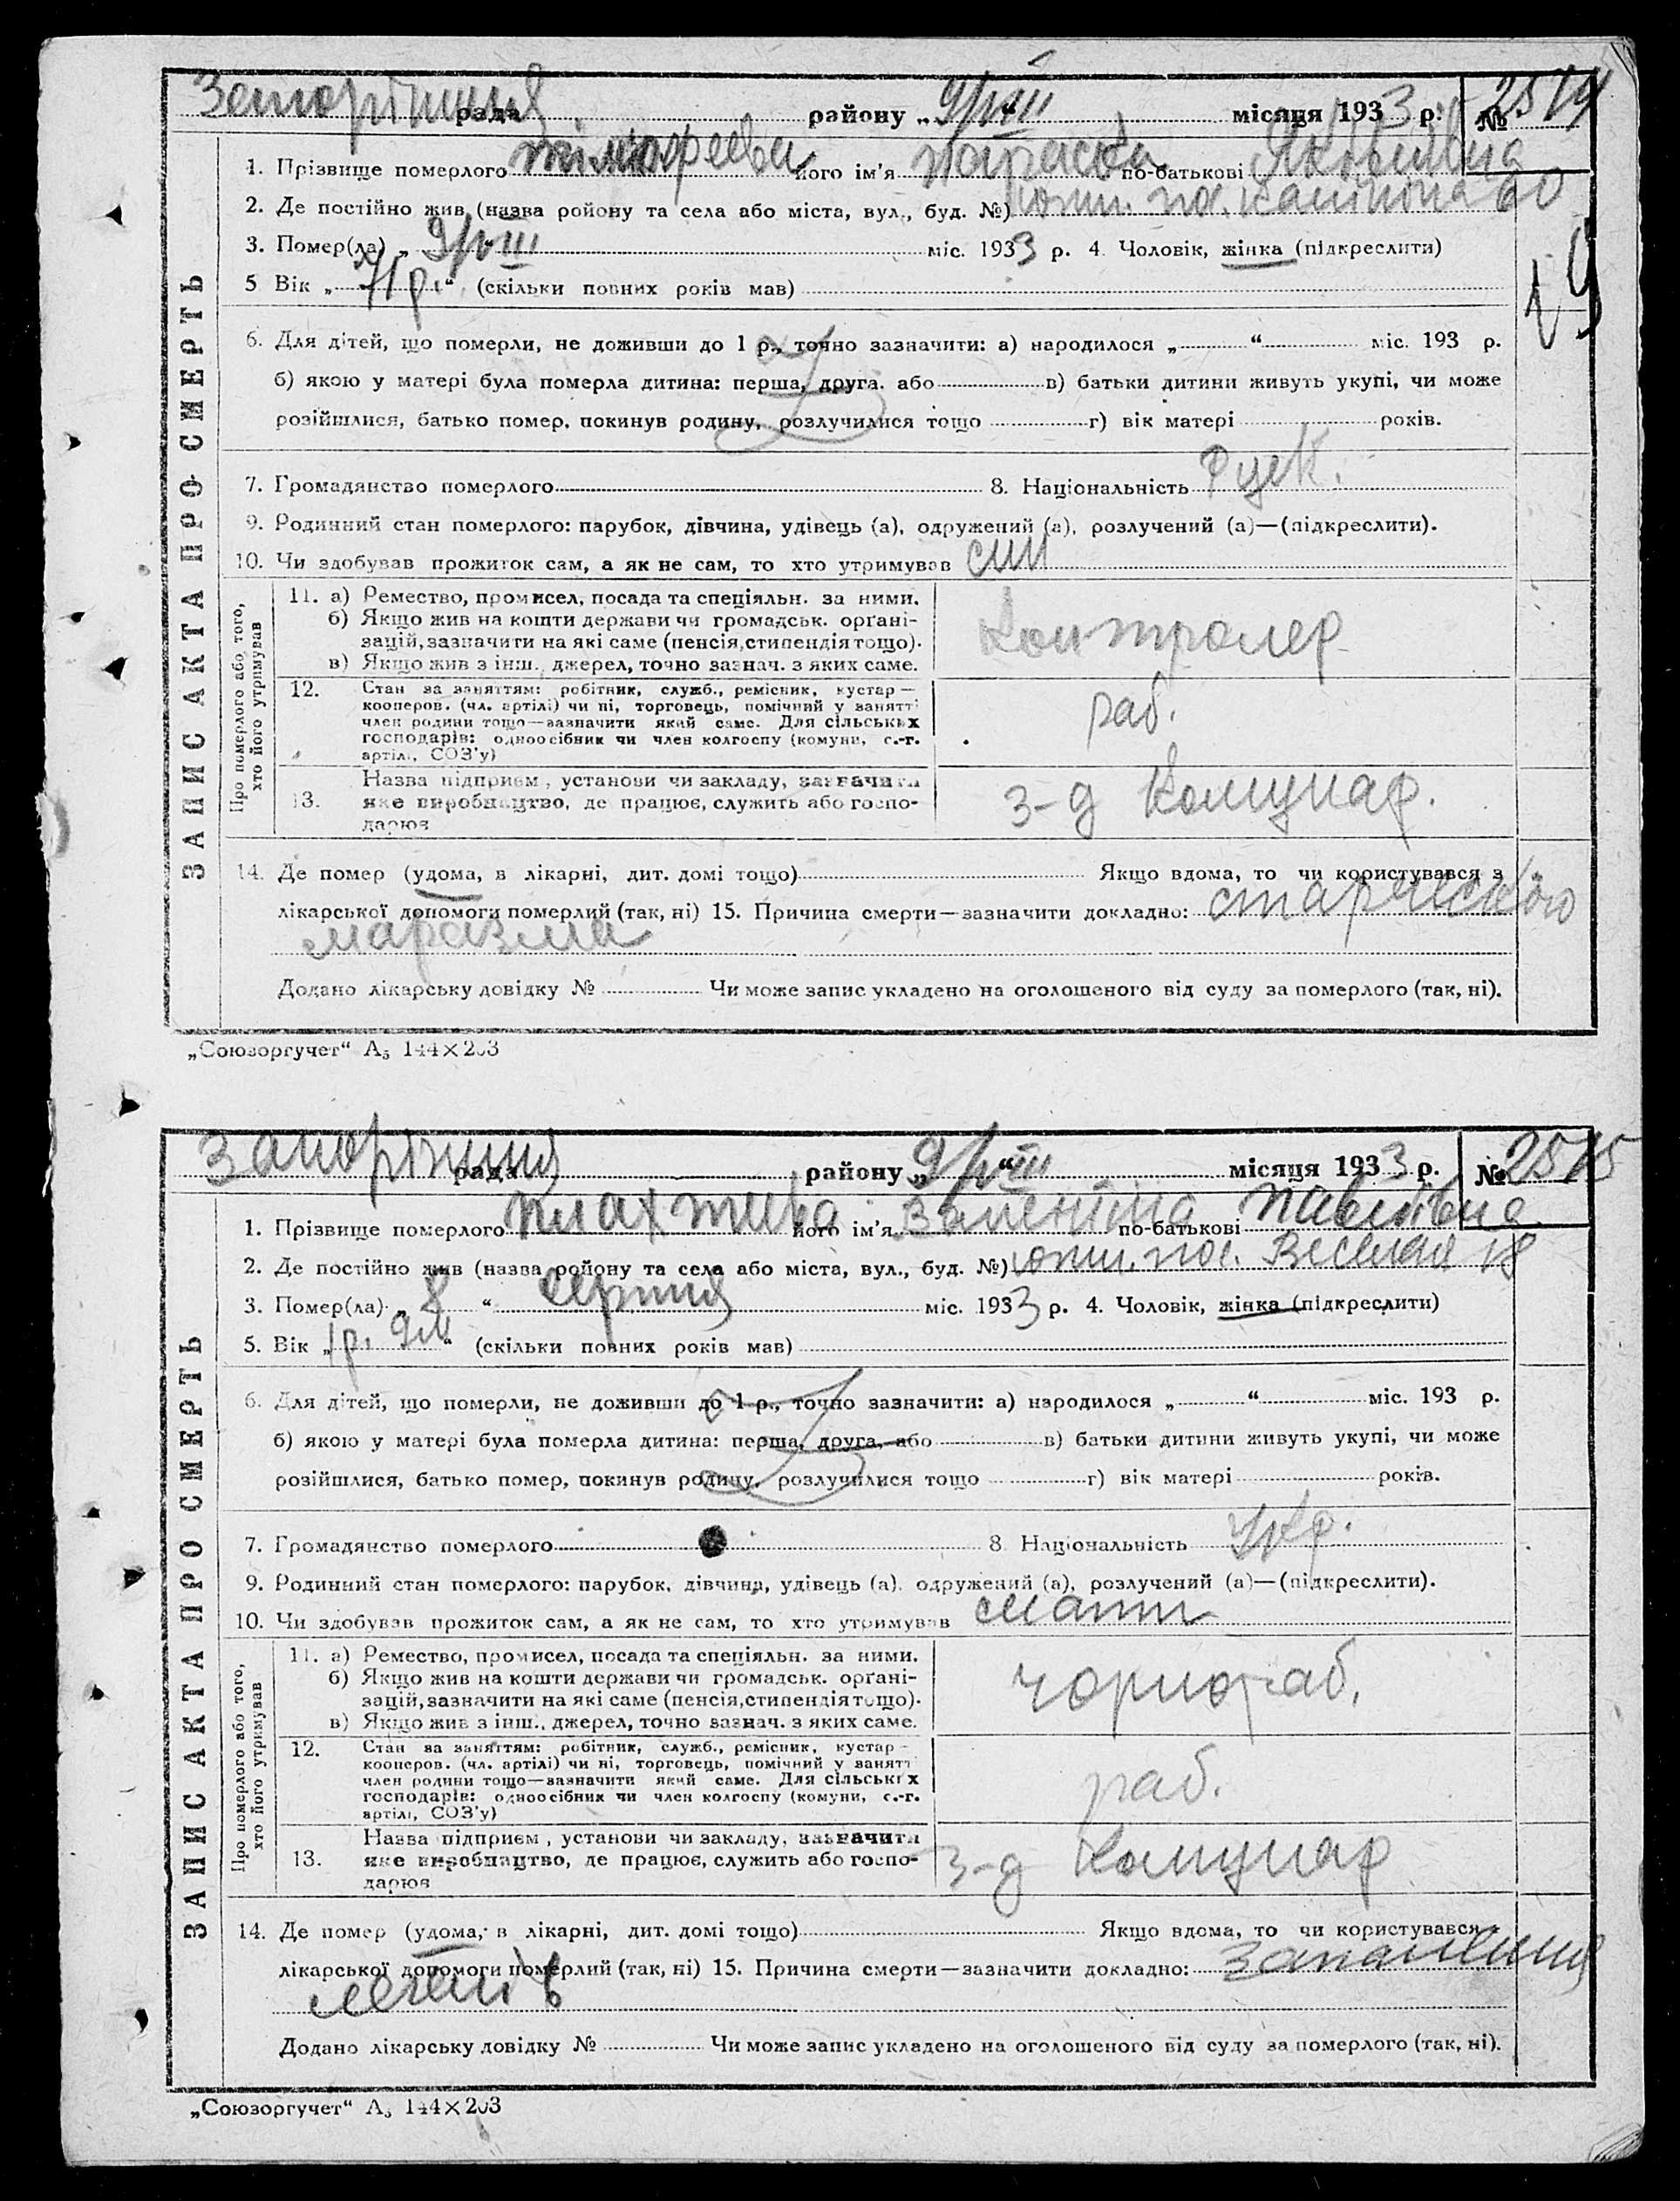 рада району „9/VIII“ місяця 1933 р. № 2514
1. Прізвище померлого його ім'я по-батькові Яківна
2. Де постійно жив (назва ройону та села або міста, вул., буд. №) 60
3. Помер(ла) „9/VIII міс. 1933 р. 4. Чоловік, жінка (підкреслити)
5 Вік „71 р.“ (скільки повних років мав)
6. Для дітей, що померли, не доживши до 1 р., точно зазначити: а) народилося „ “ міс. 193 р.
б) якою у матері була померла дитина: перша, друга. або в) батьки дитини живуть укупі, чи може
розійшлися, батько помер. покинув родину, розлучилися тощо г) вік матері років.
7. Громадянство померлого 8. Національність Руск.
9. Родинний стан померлого: парубок, дівчина, удівець (а), одружений (а), розлучений (а)—(підкреслити).
10. Чи здобував прожиток сам, а як не сам, то хто утримував син
ЗАПИС АКТА ПРО СМЕРТЬ
Про померлого або того, хто його утримував
11. а) Ремество, промисел, посада та спеціяльн. за ними.
б) Якщо жив на кошти держави чи громадськ. орґані-
зацій, зазначити на які саме (пенсія, стипендія тощо).
в) Якщо жив з інш., джерел, точно зазнач. з яких саме.
Контролер
12. Стан за заняттям: робітник, служб., ремісник, кустар—
кооперов. (чл. артілі) чи ні, торговець, помічний у занятті
член родини тощо—зазначити який саме. Для сільських
господарів: одноосібник чи член колгоспу (комуни, с.-г.
артілі, СОЗ'у)
раб.
13. Назва підприєм, установи чи закладу, зазначити
яке виробництво, де працює, служить або госпо-
дарює
з-д Комунар.
14. Де помер (удома, в лікарні, дит. домі тощо) Якщо вдома, то чи користувався з
лікарської допомоги померлий (так, ні) 15. Причина смерти—зазначити докладно: старческого
маразма
Додано лікарську довідку № Чи може запис укладено на оголошеного від суду за померлого (так, ні).
„Союзоргучет“ А₅ 144×203
рада району „9/VIII“ місяця 1933 р. № 2515
1. Прізвище померлого його ім'я Валентіна по-батькові Павлівна
2. Де постійно жив (назва ройону та села або міста, вул., буд. №) Веселая 18
3. Помер(ла) „8“ серпня міс. 1933 р. 4. Чоловік, жінка (підкреслити)
5. Вік „1 р. 9 м“ (скільки повних років мав)
6. Для дітей, що померли, не доживши до 1 р., точно зазначити: а) народилося „ “ міс. 193 р.
б) якою у матері була померла дитина: перша, друга, або в) батьки дитини живуть укупі, чи може
розійшлися, батько помер, покинув родину, розлучилися тощо г) вік матері років.
7. Громадянство померлого 8. Національність Укр.
9. Родинний стан померлого: парубок, дівчина, удівець (а), одружений (а), розлучений (а)—(підкреслити).
10. Чи здобував прожиток сам, а як не сам, то хто утримував мати
ЗАПИС АКТА ПРО СМЕРТЬ
Про померлого або того, хто його утримував
11. а) Ремество, промисел, посада та спеціяльн. за ними.
б) Якщо жив на кошти держави чи громадськ. орґані-
зацій, зазначити на які саме (пенсія, стипендія тощо).
в) Якщо жив з інш., джерел, точно зазнач. з яких саме.
чорнораб.
12. Стан за заняттям: робітник, служб., ремісник, кустар—
кооперов. (чл. артілі) чи ні, торговець, помічний у занятті
член родини тощо—зазначити який саме. Для сільських
господарів: одноосібник чи член колгоспу (комуни, с.-г.
артілі, СОЗ'у)
раб.
13. Назва підприєм, установи чи закладу, зазначити
яке виробництво, де працює, служить або госпо-
дарює
з-д Комунар
14. Де помер (удома, в лікарні, дит. домі тощо) Якщо вдома, то чи користувався з
лікарської допомоги померлий (так, ні) 15. Причина смерти—зазначити докладно: запалення
легенів
Додано лікарську довідку № Чи може запис укладено на оголошеного від суду за померлого (так, ні).
„Союзоргучет“ А₅ 144×203